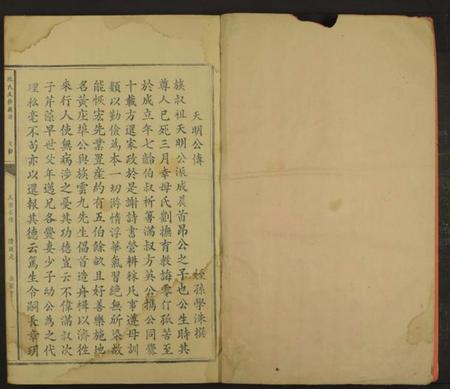 天明公傳
姪孫學洙撰
族叔祖天明公派成晨首昂公之子也公生時其
尊人已死三月幸母氏劉撫育教誨零仃孤苦至
於成立年七齡伯叔析箸滿叔方英公攜公同爨
十載方還家政於是謝詩書營耕稼凡事遵母訓
類以勤儉為本一切游惰浮華氣習絕無所染故
能恢宏先業置產約有五伯餘畝且好善樂施地
名黃座埠公與族雲九先生倡首造舟楫以濟往
來行人使無病涉之憂其功德豈云不偉滿叔次
子芹藻早世父年邁兄各爨妻少子幼公為之代
理松毫不苟亦以還報其德云篤生令嗣長章玥